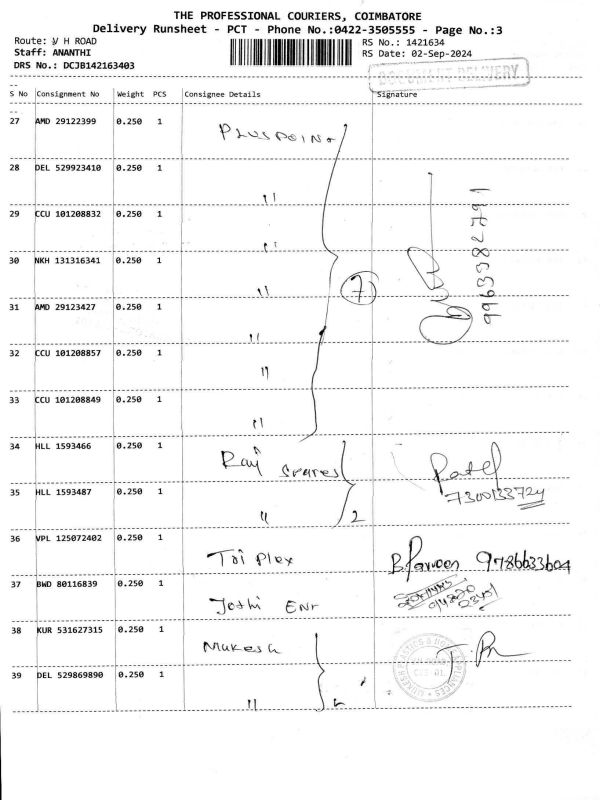 THE PROFESSIONAL COURIERS, COIMBATORE
Delivery Runsheet - PCT - Phone No.:0422-3505555 - Page No.:3
Route: V H ROAD
RS No.: 1421634
Staff: ANANTHI
RS Date: 02-Sep-2024
DRS No.: DCJB142163403
DOCUMENT DELIVERY
S No Consignment No Weight PCS Consignee Details Signature
27 AMD 29122399 0.250 1 PLUSPOINT
28 DEL 529923410 0.250 1 "
29 CCU 101208832 0.250 1 "
30 NKH 131316341 0.250 1 "
7
9963382791
31 AMD 29123427 0.250 1 "
32 CCU 101208857 0.250 1 "
33 CCU 101208849 0.250 1 "
34 HLL 1593466 0.250 1 Raj Spares Patel
7300133724
35 HLL 1593487 0.250 1 " 2
36 VPL 125072402 0.250 1 Tri Plex 9786633604
37 BWD 80116839 0.250 1 Joshi Ent
38 KUR 531627315 0.250 1 Mukesh
39 DEL 529869890 0.250 1 "